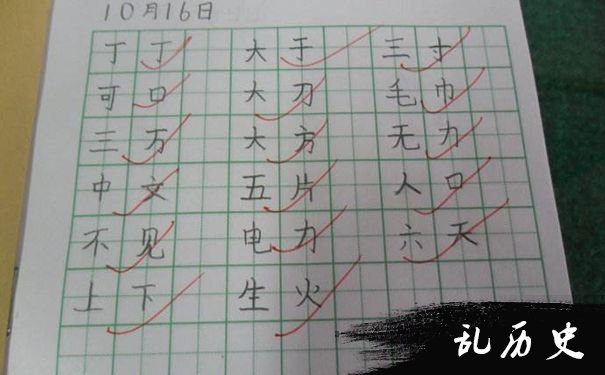 10月16日
丁丁 大于 三寸
可口 大刀 毛巾
三万 大方 无力
中文 五片 人口
不见 电力 六天
上下 生火
乱历史